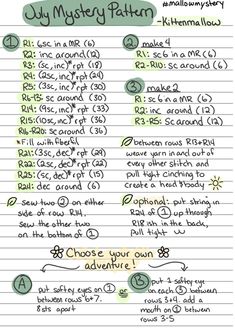 July Mystery Pattern
#mallowmystery
-Kittenmallow
1
R1: 6sc in a MR (6)
R2: inc around (12)
R3: (sc, inc)* rpt (18)
R4: (2sc, inc)* rpt (24)
R5: (3sc, inc)* rpt (30)
R6-13: sc around (30)
R14: (9sc, inc)* rpt (33)
R15: (10sc, inc)* rpt (36)
R16-R20: sc around (36)
*Fill with fiberfil
R21: (3sc, dec)* rpt (29)
R22: (2sc, dec)* rpt (22)
R23: (sc, dec)* rpt (15)
R24: dec around (6)
2 make 4
R1: sc 6 in a MR (6)
R2-R10: sc around (6)
3 make 2
R1: sc 6 in a MR (6)
R2: inc around (12)
R3-R5: sc around (12)
between rows R13+R14
weave yarn in and out of
every other stitch and
pull tight cinching to
create a head + body
sew two 2 on either
side of row R14.
Sew the other two
on the bottom of 1
optional: put string in
R24 of 1 up through
R18 ish in the back,
Pull tight
Choose your own
adventure!
A
put saftey eyes on 1
between rows 6+7.
8sts apart
or
B
put 1 saftey eye
on each 3 between
rows 3+4. add a
mouth on 1 between
rows 3-5